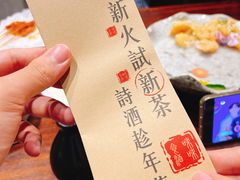 新火試新茶
詩酒趁年